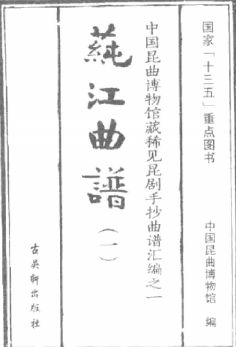 国家「十三五」重点图书
中国昆曲博物馆 编
中国昆曲博物馆藏稀见昆剧手抄曲谱汇编之一
莼江曲譜
(一)
古吴轩出版社